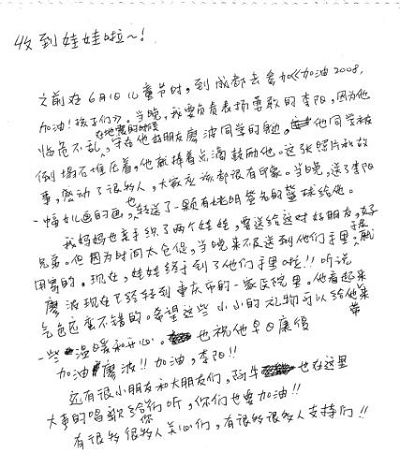 收到娃娃啦~!
之前在6月1日儿童节时,到成都去参加《加油2008,
加油!孩子们》。当晚,我要负责表扬勇敢的李阳,因为他
临危不乱,在地震的时候守在他好朋友廖波同学的腿,他同学被
倒塌石堆压着,他就捧着点滴鼓励他。这张照片和故
事,感动了很多人,大家应该都很有印象。当晚,送了李阳
一幅幼儿画的画,也转送了一颗有姚明签名的篮球给他。
我妈妈也亲手织了两个娃娃,要送给这对好朋友,好
兄弟。但因为时间太仓促,当晚来不及送到他们手里,
现在,娃娃终于到了他们手里啦!!听说
廖波现在已经转到重庆市的一家医院里。他看起来
气色还蛮不错的。希望这些小小的礼物可以给他带
一些温暖和开心。也祝他早日康复
加油廖波!!加油,李阳!!
还有很小朋友和大朋友们,阿牛也在这里
大声的唱歌给你们听,你们也要加油!!
有很多很多人关心们,有很多很多人支持们!!